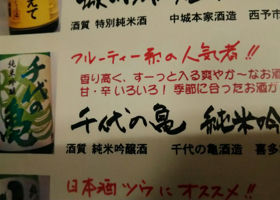 えて
酒質 特別純米酒 中城本家酒造 西予市
フルーティー系の人気者!!
香り高く、すーっと入る爽やか〜なお酒
甘・辛いろいろ! 季節に合ったお酒が
純米吟醸
千代の亀
千代の亀 純米吟
酒質 純米吟醸酒 千代の亀酒造 喜多
日本酒ツウにオススメ!!